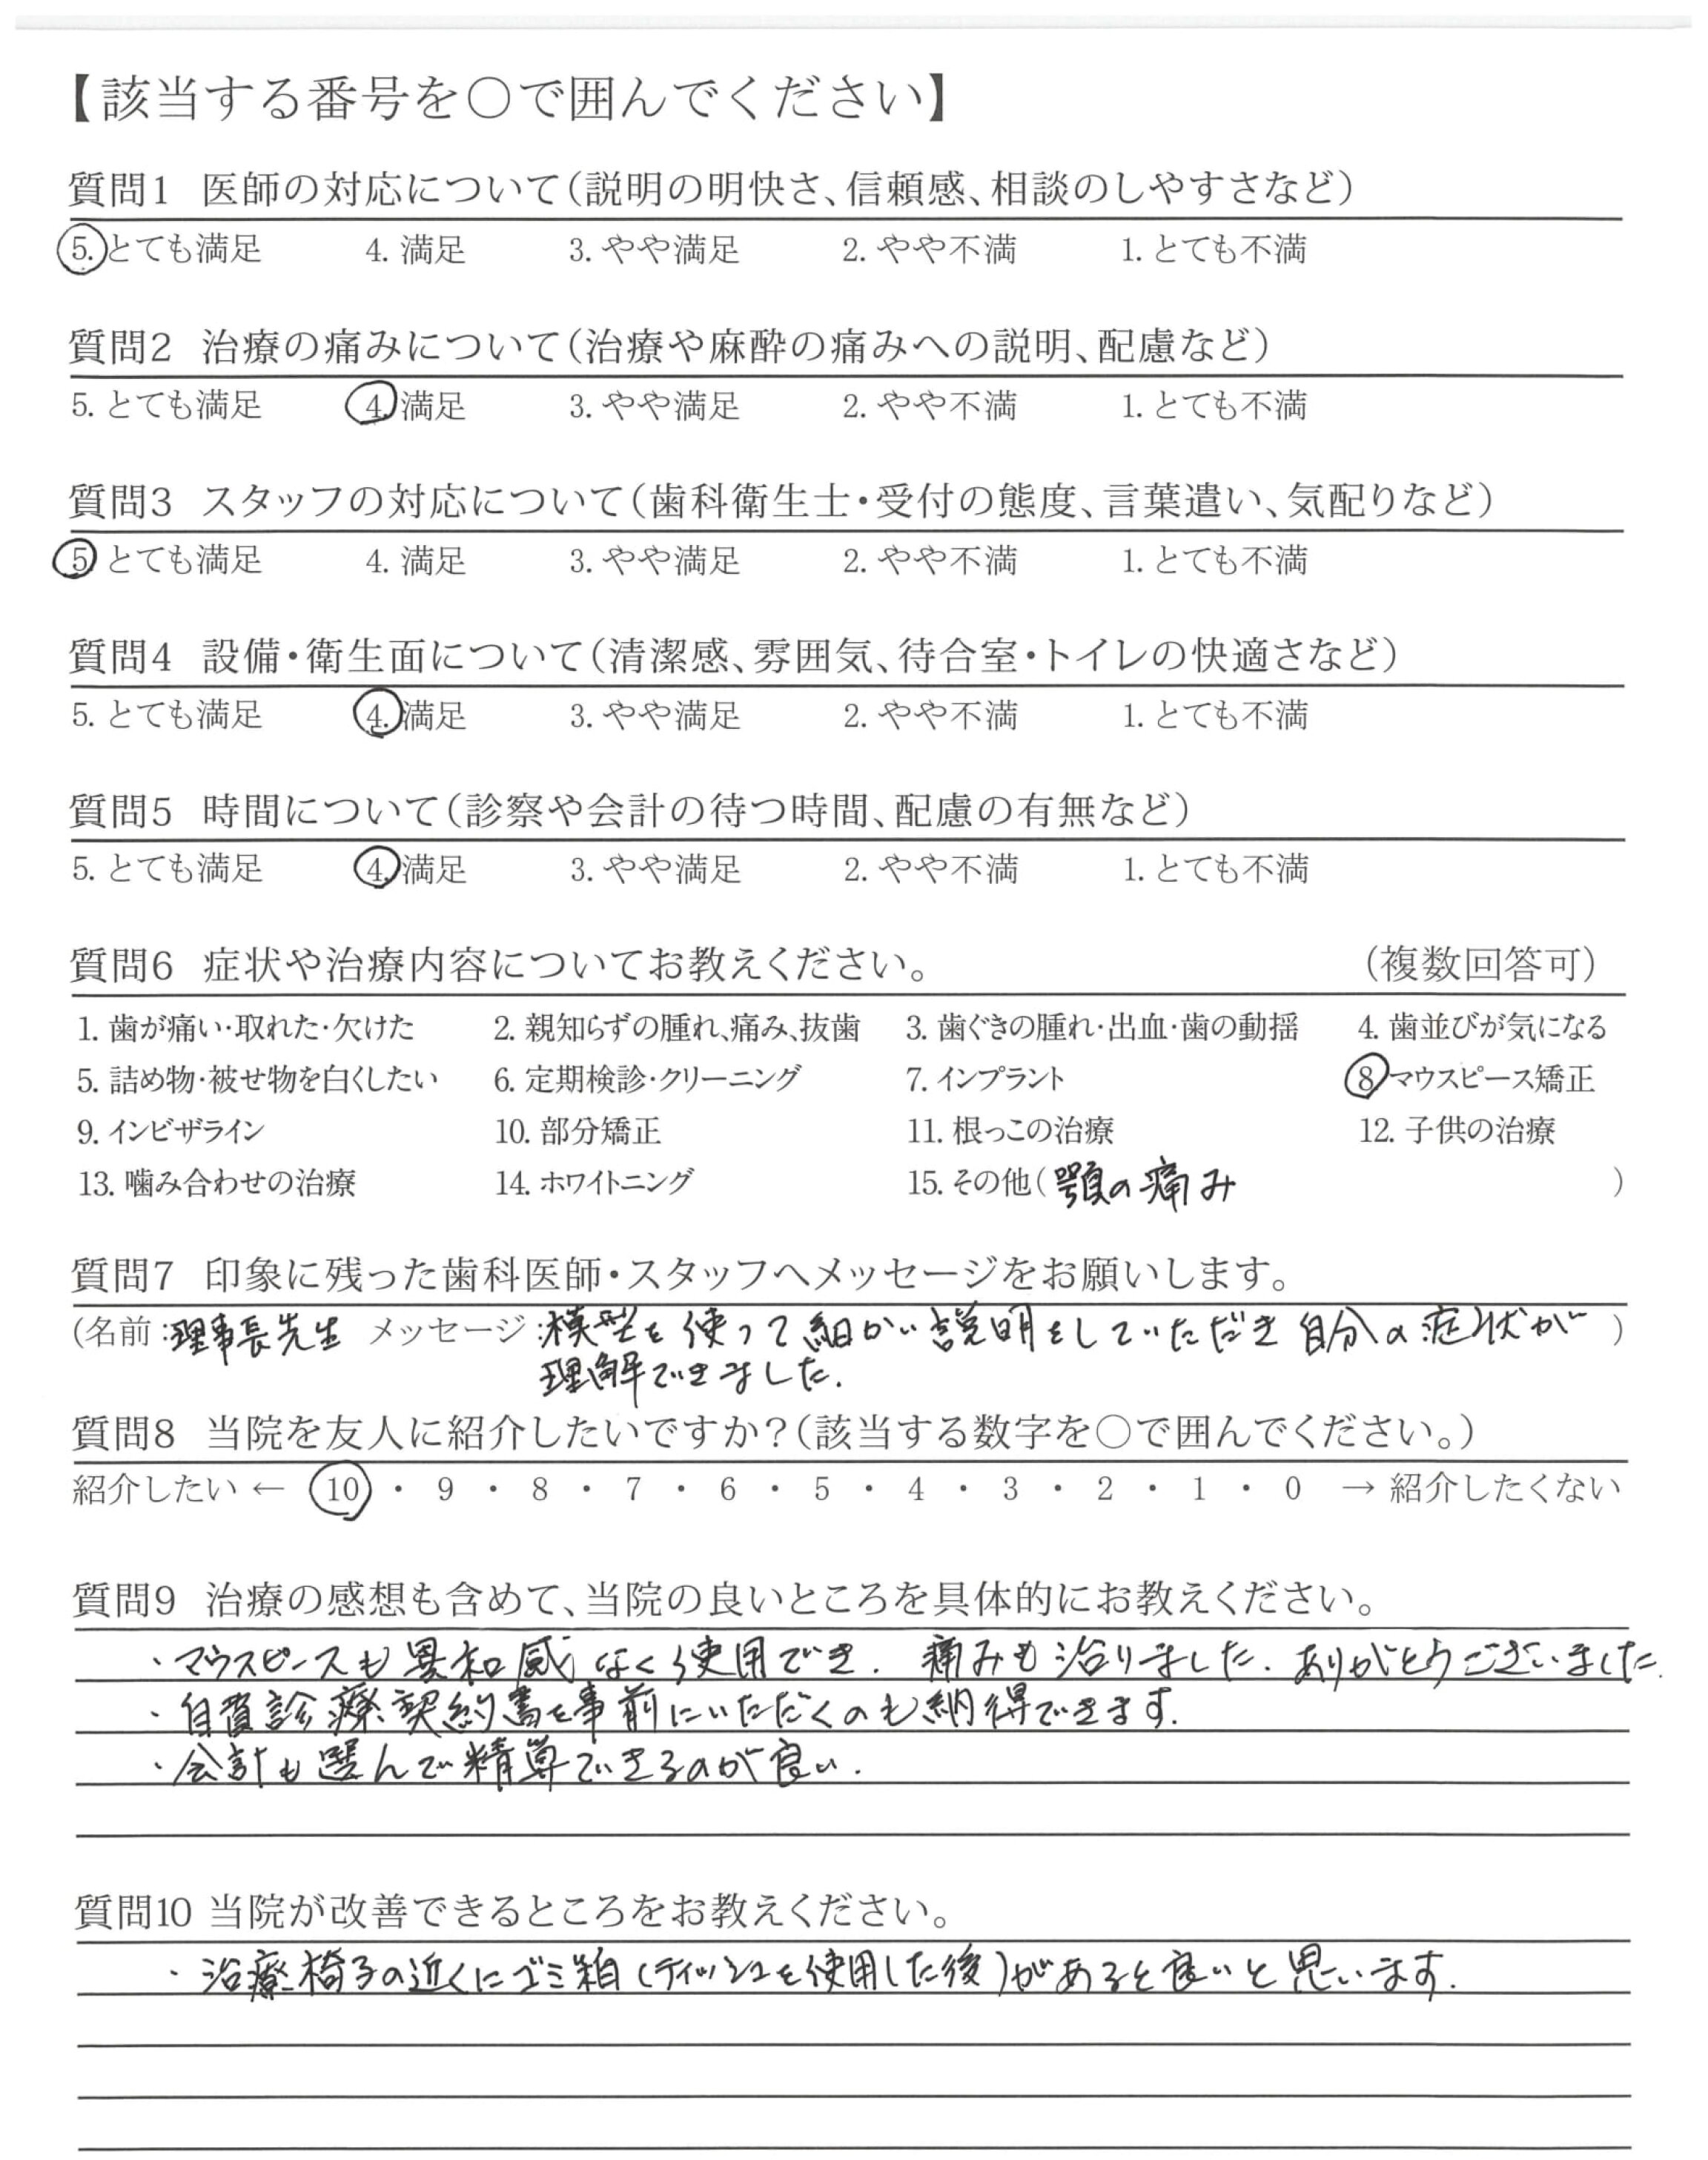 【該当する番号を○で囲んでください】
質問1 医師の対応について(説明の明快さ、信頼感、相談のしやすさなど)
5. とても満足 4. 満足 3. やや満足 2. やや不満 1. とても不満
質問2 治療の痛みについて(治療や麻酔の痛みへの説明、配慮など)
5. とても満足 4. 満足 3. やや満足 2. やや不満 1. とても不満
質問3 スタッフの対応について(歯科衛生士・受付の態度、言葉遣い、気配りなど)
5 とても満足 4. 満足 3. やや満足 2. やや不満 1. とても不満
質問4 設備・衛生面について(清潔感、雰囲気、待合室・トイレの快適さなど)
5. とても満足 4. 満足 3. やや満足 2. やや不満 1. とても不満
質問5 時間について(診察や会計の待つ時間、配慮の有無など)
5. とても満足 4. 満足 3. やや満足 2. やや不満 1. とても不満
質問6 症状や治療内容についてお教えください。 (複数回答可)
1. 歯が痛い・取れた・欠けた 2. 親知らずの腫れ、痛み、抜歯 3. 歯ぐきの腫れ・出血・歯の動揺 4. 歯並びが気になる
5. 詰め物・被せ物を白くしたい 6. 定期検診・クリーニング 7. インプラント 8 マウスピース矯正
9. インビザライン 10. 部分矯正 11. 根っこの治療 12. 子供の治療
13. 噛み合わせの治療 14. ホワイトニング 15. その他(顎の痛み )
質問7 印象に残った歯科医師・スタッフへメッセージをお願いします。
(名前:理事長先生 メッセージ:模型を使って細かい説明をしていただき自分の症状が )
理解できました.
質問8 当院を友人に紹介したいですか?(該当する数字を○で囲んでください。)
紹介したい ← 10 ・ 9 ・ 8 ・ 7 ・ 6 ・ 5 ・ 4 ・ 3 ・ 2 ・ 1 ・ 0 → 紹介したくない
質問9 治療の感想も含めて、当院の良いところを具体的にお教えください。
・マウスピースも異和感なく使用でき. 痛みも治りました. ありがとうございました.
・自費診療契約書を事前にいただくのも納得できます.
・会計も選んで精算できるのが良い.
質問10 当院が改善できるところをお教えください。
・治療椅子の近くにゴミ箱(ティッシュを使用した後)があると良いと思います.